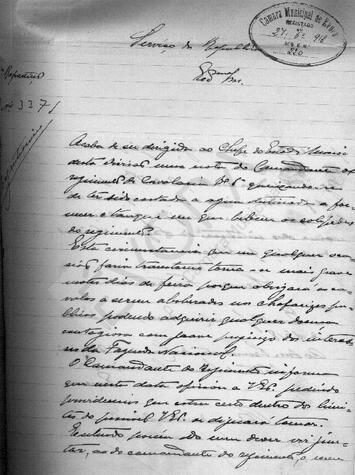 Camara Municipal de Evora
27. 6º 912
220
Serviço da Republica
Repartição
Nº 337
Acaba de ser dirigida ao Chefe do Estado Maior
desta Divisão uma nota do Comandante do
regimento de Cavalaria Nº 5 queixando-se
de ter sido cortada a agua destinada a
e tanque em que bebem os solipedes
do regimento.
Esta circunstancia que em qualquer
faria transtorno torna-se mais grave
nestes dias de feira porque obrigará os
a serem abeberados nos chafarizes
podendo adquirir qualquer doença
contagiosa com grave prejuizo dos interesses
da Fazenda Nacional.
O Comandante do Regimento informa
que nesta data oficiou a V.Ex. pedindo
providencias que estou certo dentro dos limi-
tes do possivel V.Ex. se dignará tomar.
Entendo porém do meu dever vir jun-
tar, ao do comandante do regimento, o meu